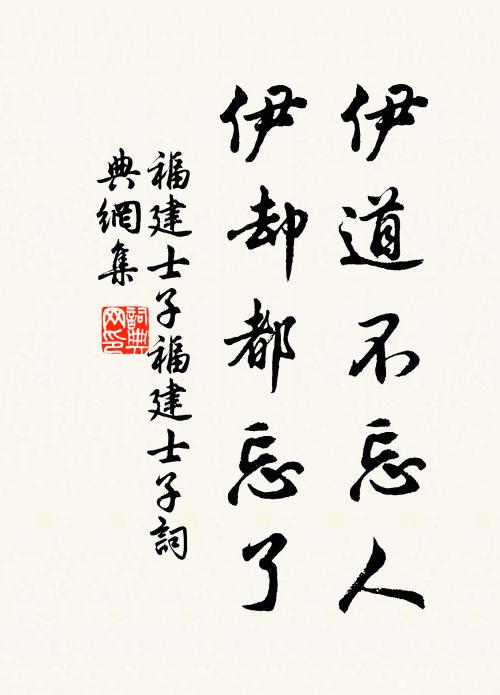 伊道不忘人
伊却都忘了
福建士子福建士子詞
典網集
詞典
网印